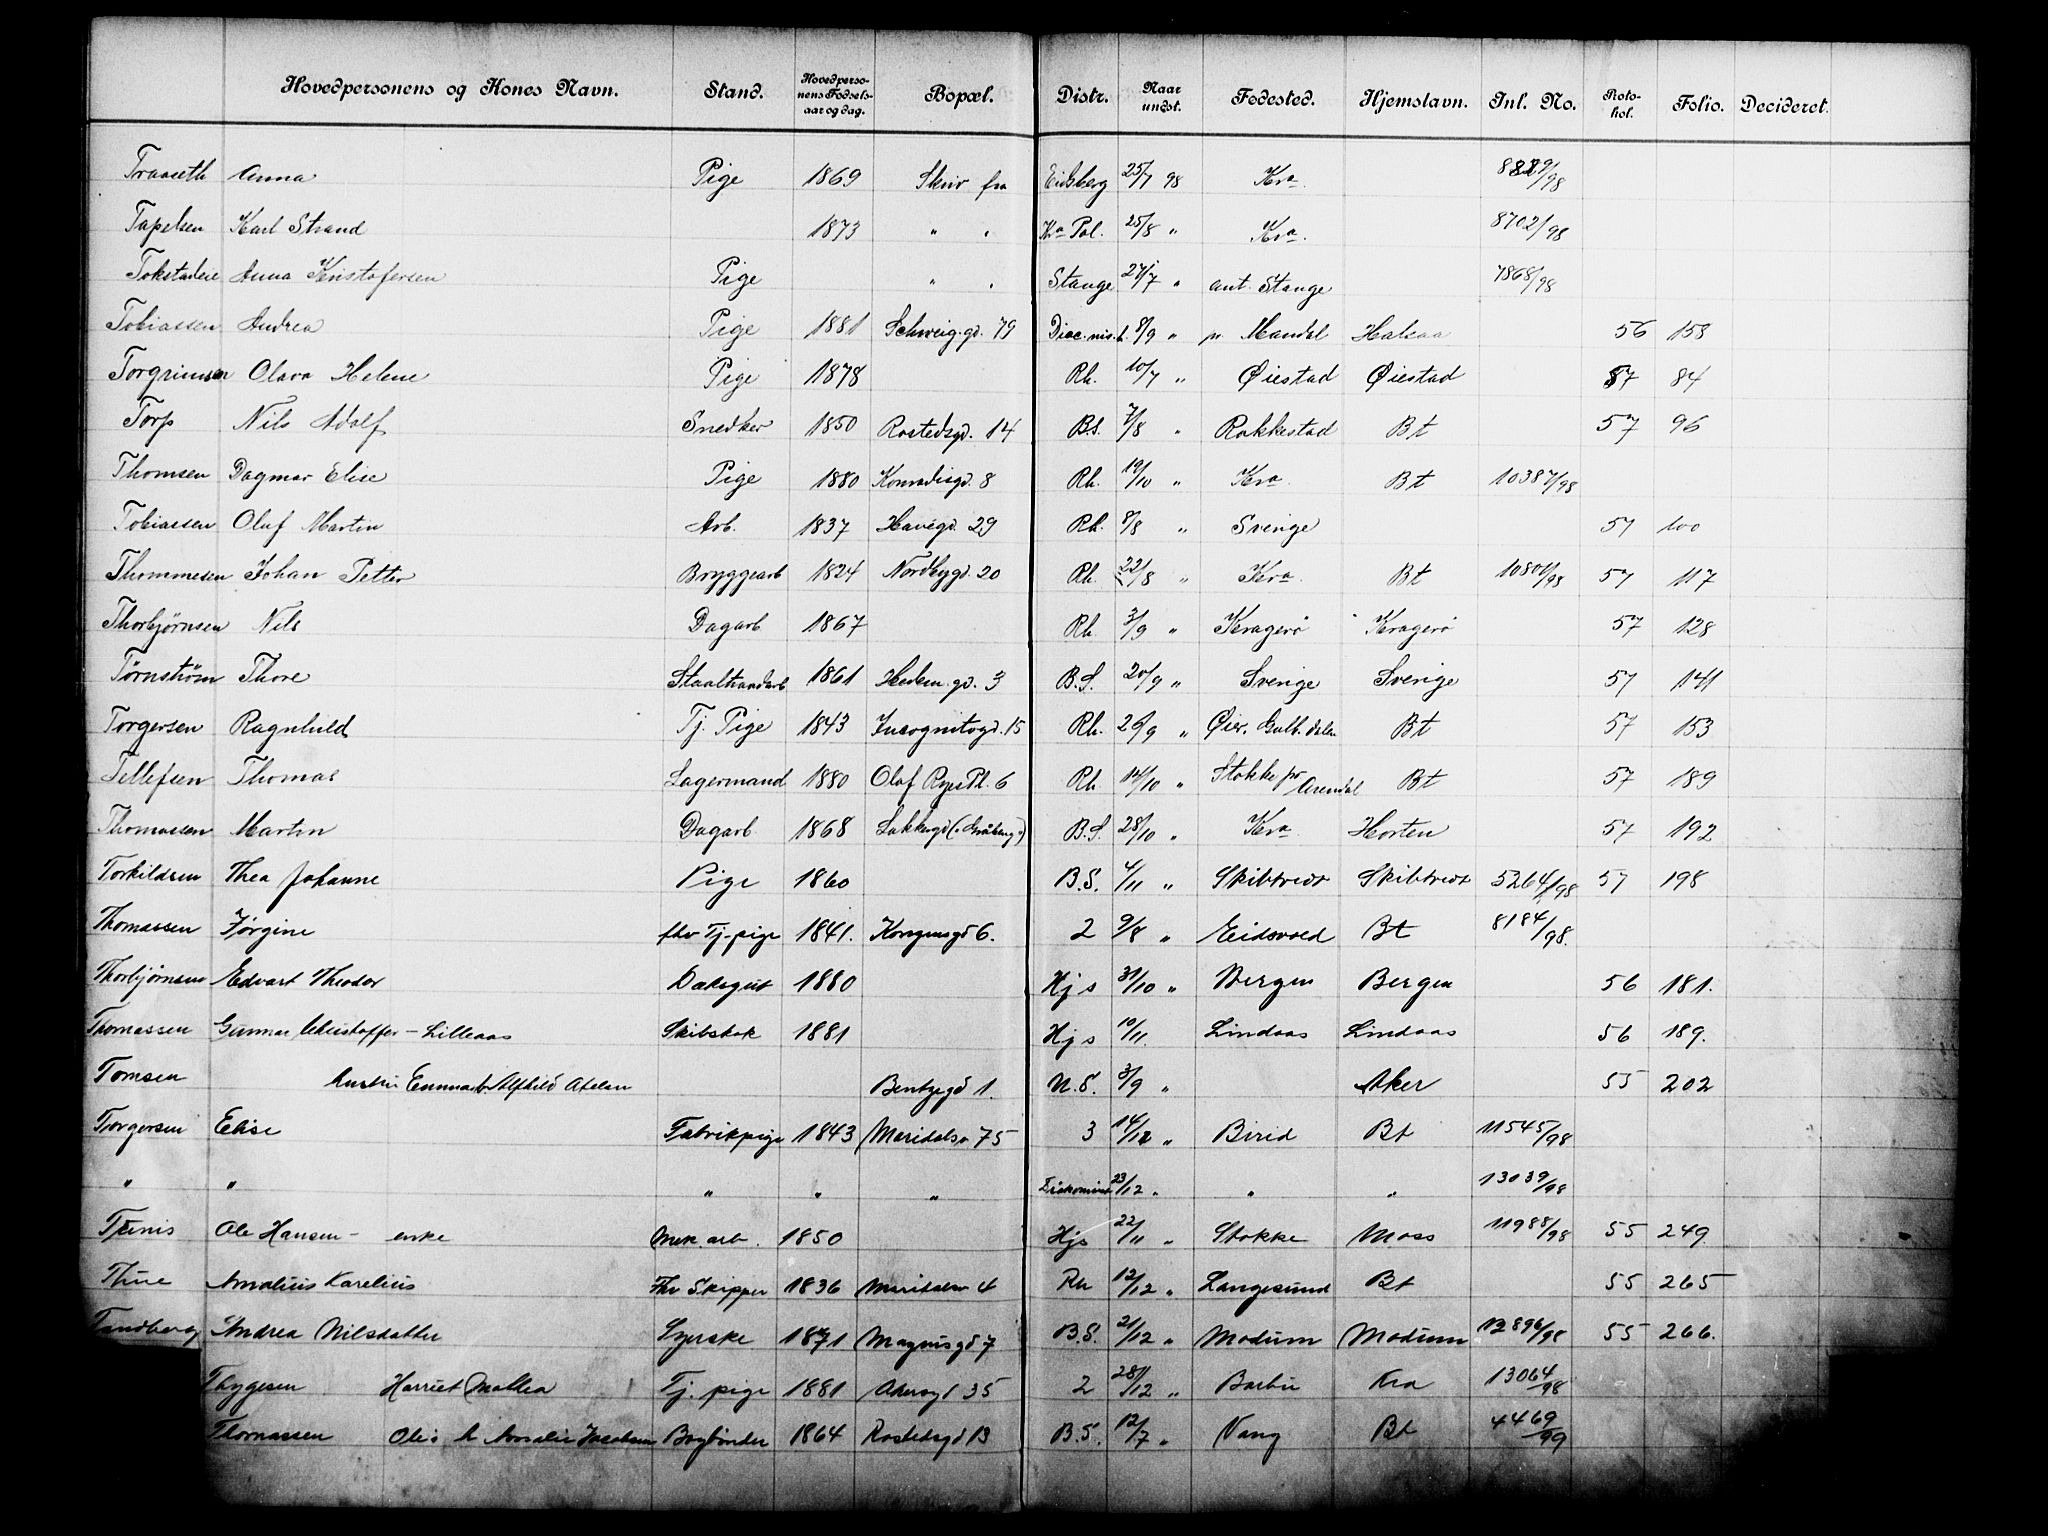 Hovedpersonens og Kones Navn. Stand. Hovedpersonens Fødselsaar og dag. Bopæl. Distr. Naar undst. Fødested. Hjemstavn. Inl. No. Protokol. Folio. Decideret.
Traaseth Anna Pige 1869 Skriv fra Eidsberg 25/7 98 Kra. 8889/98
Tapelsen Karl Strand 1873 " " Kra Pol. 25/8 " Kra. 8702/98
Tokstadeie Anna Kristofersen Pige " " Stange 27/7 " ant. Stange 7868/98
Tobiassen Andrea Pige 1881 Schweig.gd. 79 Diac.mis.h. 8/9 " pr Mandal Halsaa 56 153
Torgrimsen Olava Helene Pige 1878 Rh. 10/7 " Øiestad Øiestad 57 84
Torp Nils Adolf Snedker 1850 Rostedsgd. 14 B.S. 7/8 " Rakkestad Bt 57 96
Thomsen Dagmar Elise Pige 1880 Konradisgd. 8 Rh. 19/10 " Kra Bt 10387/98
Tobiassen Oluf Martin Arb. 1837 Havegd. 29 Rh. 8/8 " Sverige 57 100
Thommesen Johan Petter Bryggearb 1824 Nordbygd. 20 Rh. 22/8 " Kra Bt 10801/98 57 117
Thorbjørnsen Nils Dagarb 1867 Rh. 3/9 " Kragerø Kragerø 57 128
Tørnstrøm Thore Staaltraadarb 1861 Hedem.gd. 3 B.S. 20/9 " Sverige Sverige 57 141
Torgersen Ragnhild Tj. Pige 1843 Incognitogd. 15 Rh. 26/9 " Øier, Gulb.dalen Bt 57 153
Tellefsen Thomas Lagermand 1880 Olaf Ryes Pl. 6 Rh 14/10 " Stokke pr Arendal Bt 57 189
Thomassen Martin Dagarb 1868 Lakkegd ("Gråberg") B.S. 28/10 " Kra. Horten 57 192
Torkildsen Thea Johanne Pige 1860 B.S. 4/11 " Skibtvedt Skibtvedt 5264/98 57 198
Thomassen Jørgine fhv Tj-pige 1841. Kongensgd 6. 2 9/8 " Eidsvold Bt 8184/98.
Thorbjørnsen Edvart Theodor Dæksgut 1880 Hjs 31/10 " Bergen Bergen 56 181.
Thomassen Gunnar Christoffer - Lilleaas Skibskok 1881 Hjs 10/11. Lindaas Lindaas 56 189.
Tomsen Hustru Emma Alfhild Bentsegd 1. U.S. 3/9 " Aker 55 202
Torgersen Elise Fabrikpige 1843 Maridalsv 75 3 14/12 " Birid Bt 11545/98
" " " " " 23/12 " " " 13039/98
Tunis Ole Hansen - enke mek. arb. 1850 Hjs 22/11 " Stokke Moss 11988/98 55 249.
Thue Amalius Karelius Fhv Skipper 1836 Maridalsv 4 Rh 12/12 " Langesund Bt 55 265
Tandberg Andrea Nilsdatter Syerske 1871 Magnusgd 7 B.S. 21/12 " Modum Modum 12896/98 55 266.
Thygesen Harriet Mathea Tj. pige 1881 Akersgt 35 2 28/12 " Barbu Kra 13064/98
Thomassen Ole h Amalie Jacobsen Bogbinder 1864 Rostedsgd 13 B.S. 12/7 " Vang Bt 4469/99